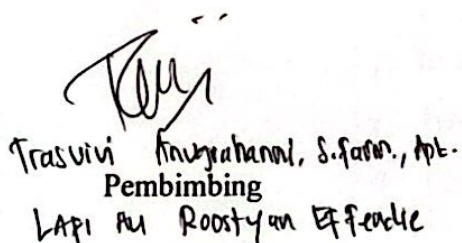 Trasvivi Anugrahanni, S.Farm., Apt.
Pembimbing
LAPI Au Roostyan Effendie